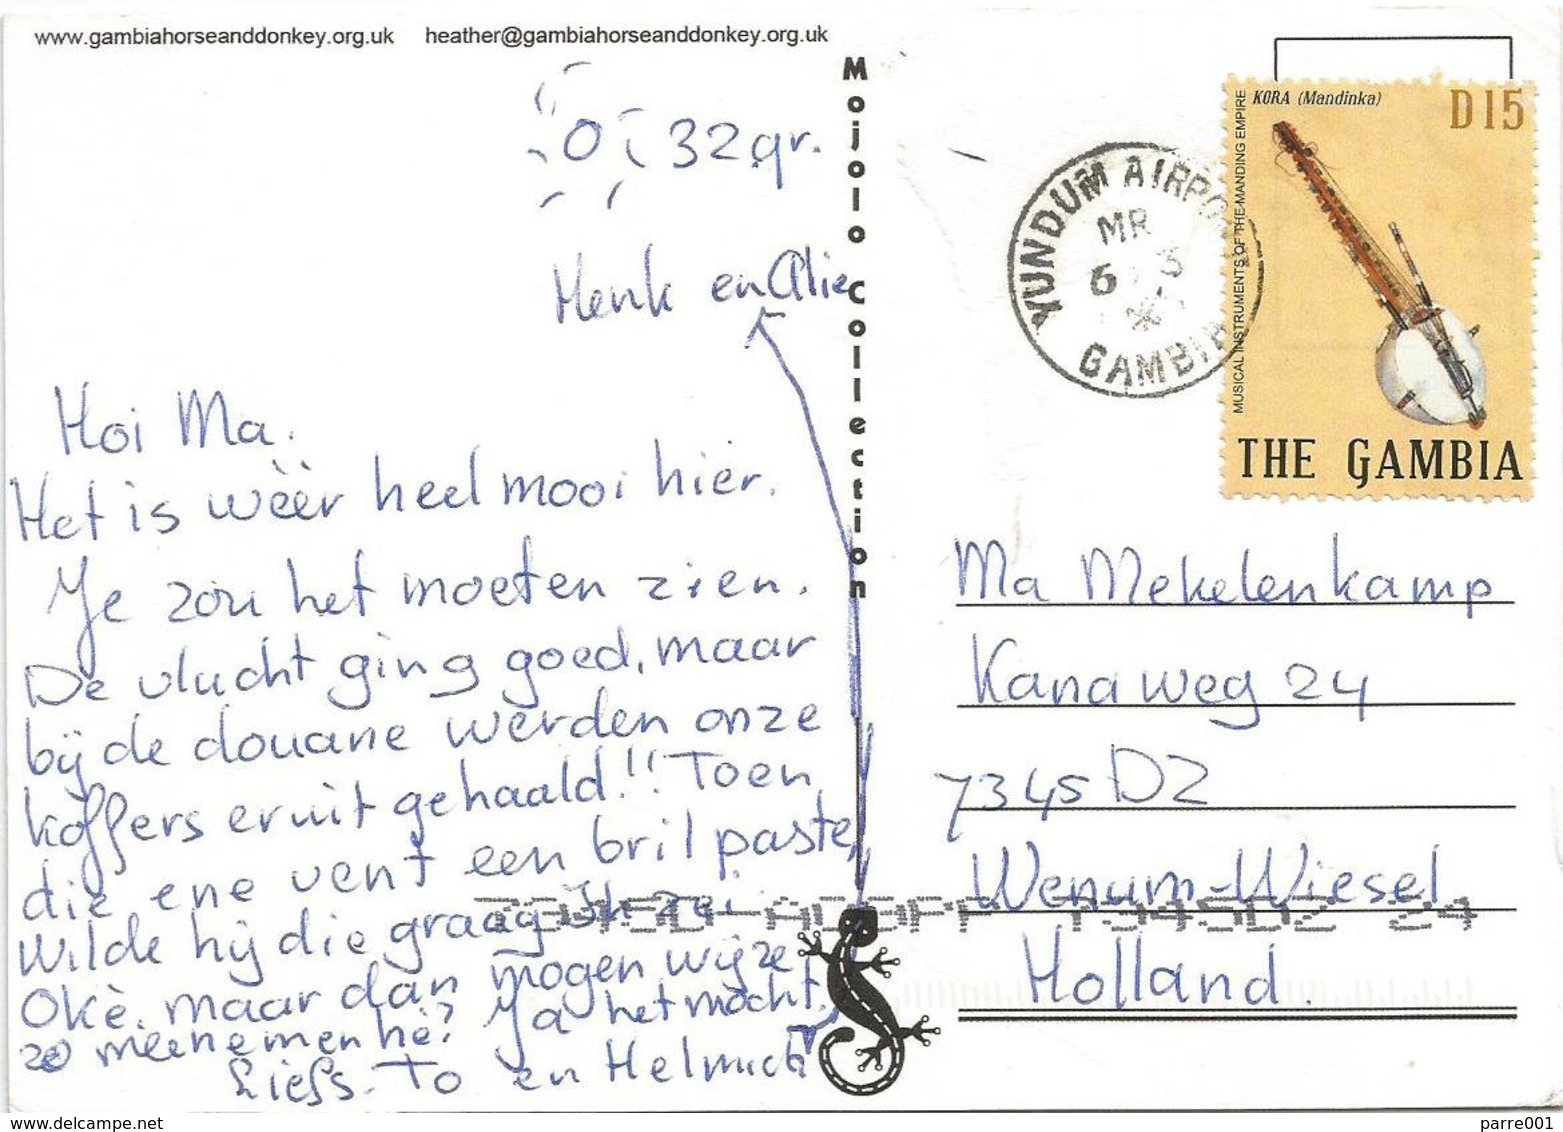 www.gambiahorseanddonkey.org.uk heather@gambiahorseanddonkey.org.uk
Mojolo Collection
32 gr.
Henk en Alie
Hoi Ma.
Het is wèèr heel mooi hier.
Je zou het moeten zien.
De vlucht ging goed, maar
bij de douane werden onze
koffers eruit gehaald!! Toen
die ene vent een bril paste,
wilde hij die graag Ik zei
Okè. maar dan mogen wij ze
zo meenemen hè? Ja het mocht.
Liefs. To en Helmich
KORA (Mandinka)
D15
MUSICAL INSTRUMENTS OF THE MANDING EMPIRE
THE GAMBIA
YUNDUM AIRPORT
MR
GAMBIA
Ma Mekelenkamp
Kanaweg 24
7345 DZ
Wenum-Wiesel
Holland.
7345DZ 24
www.delcampe.net
parre001